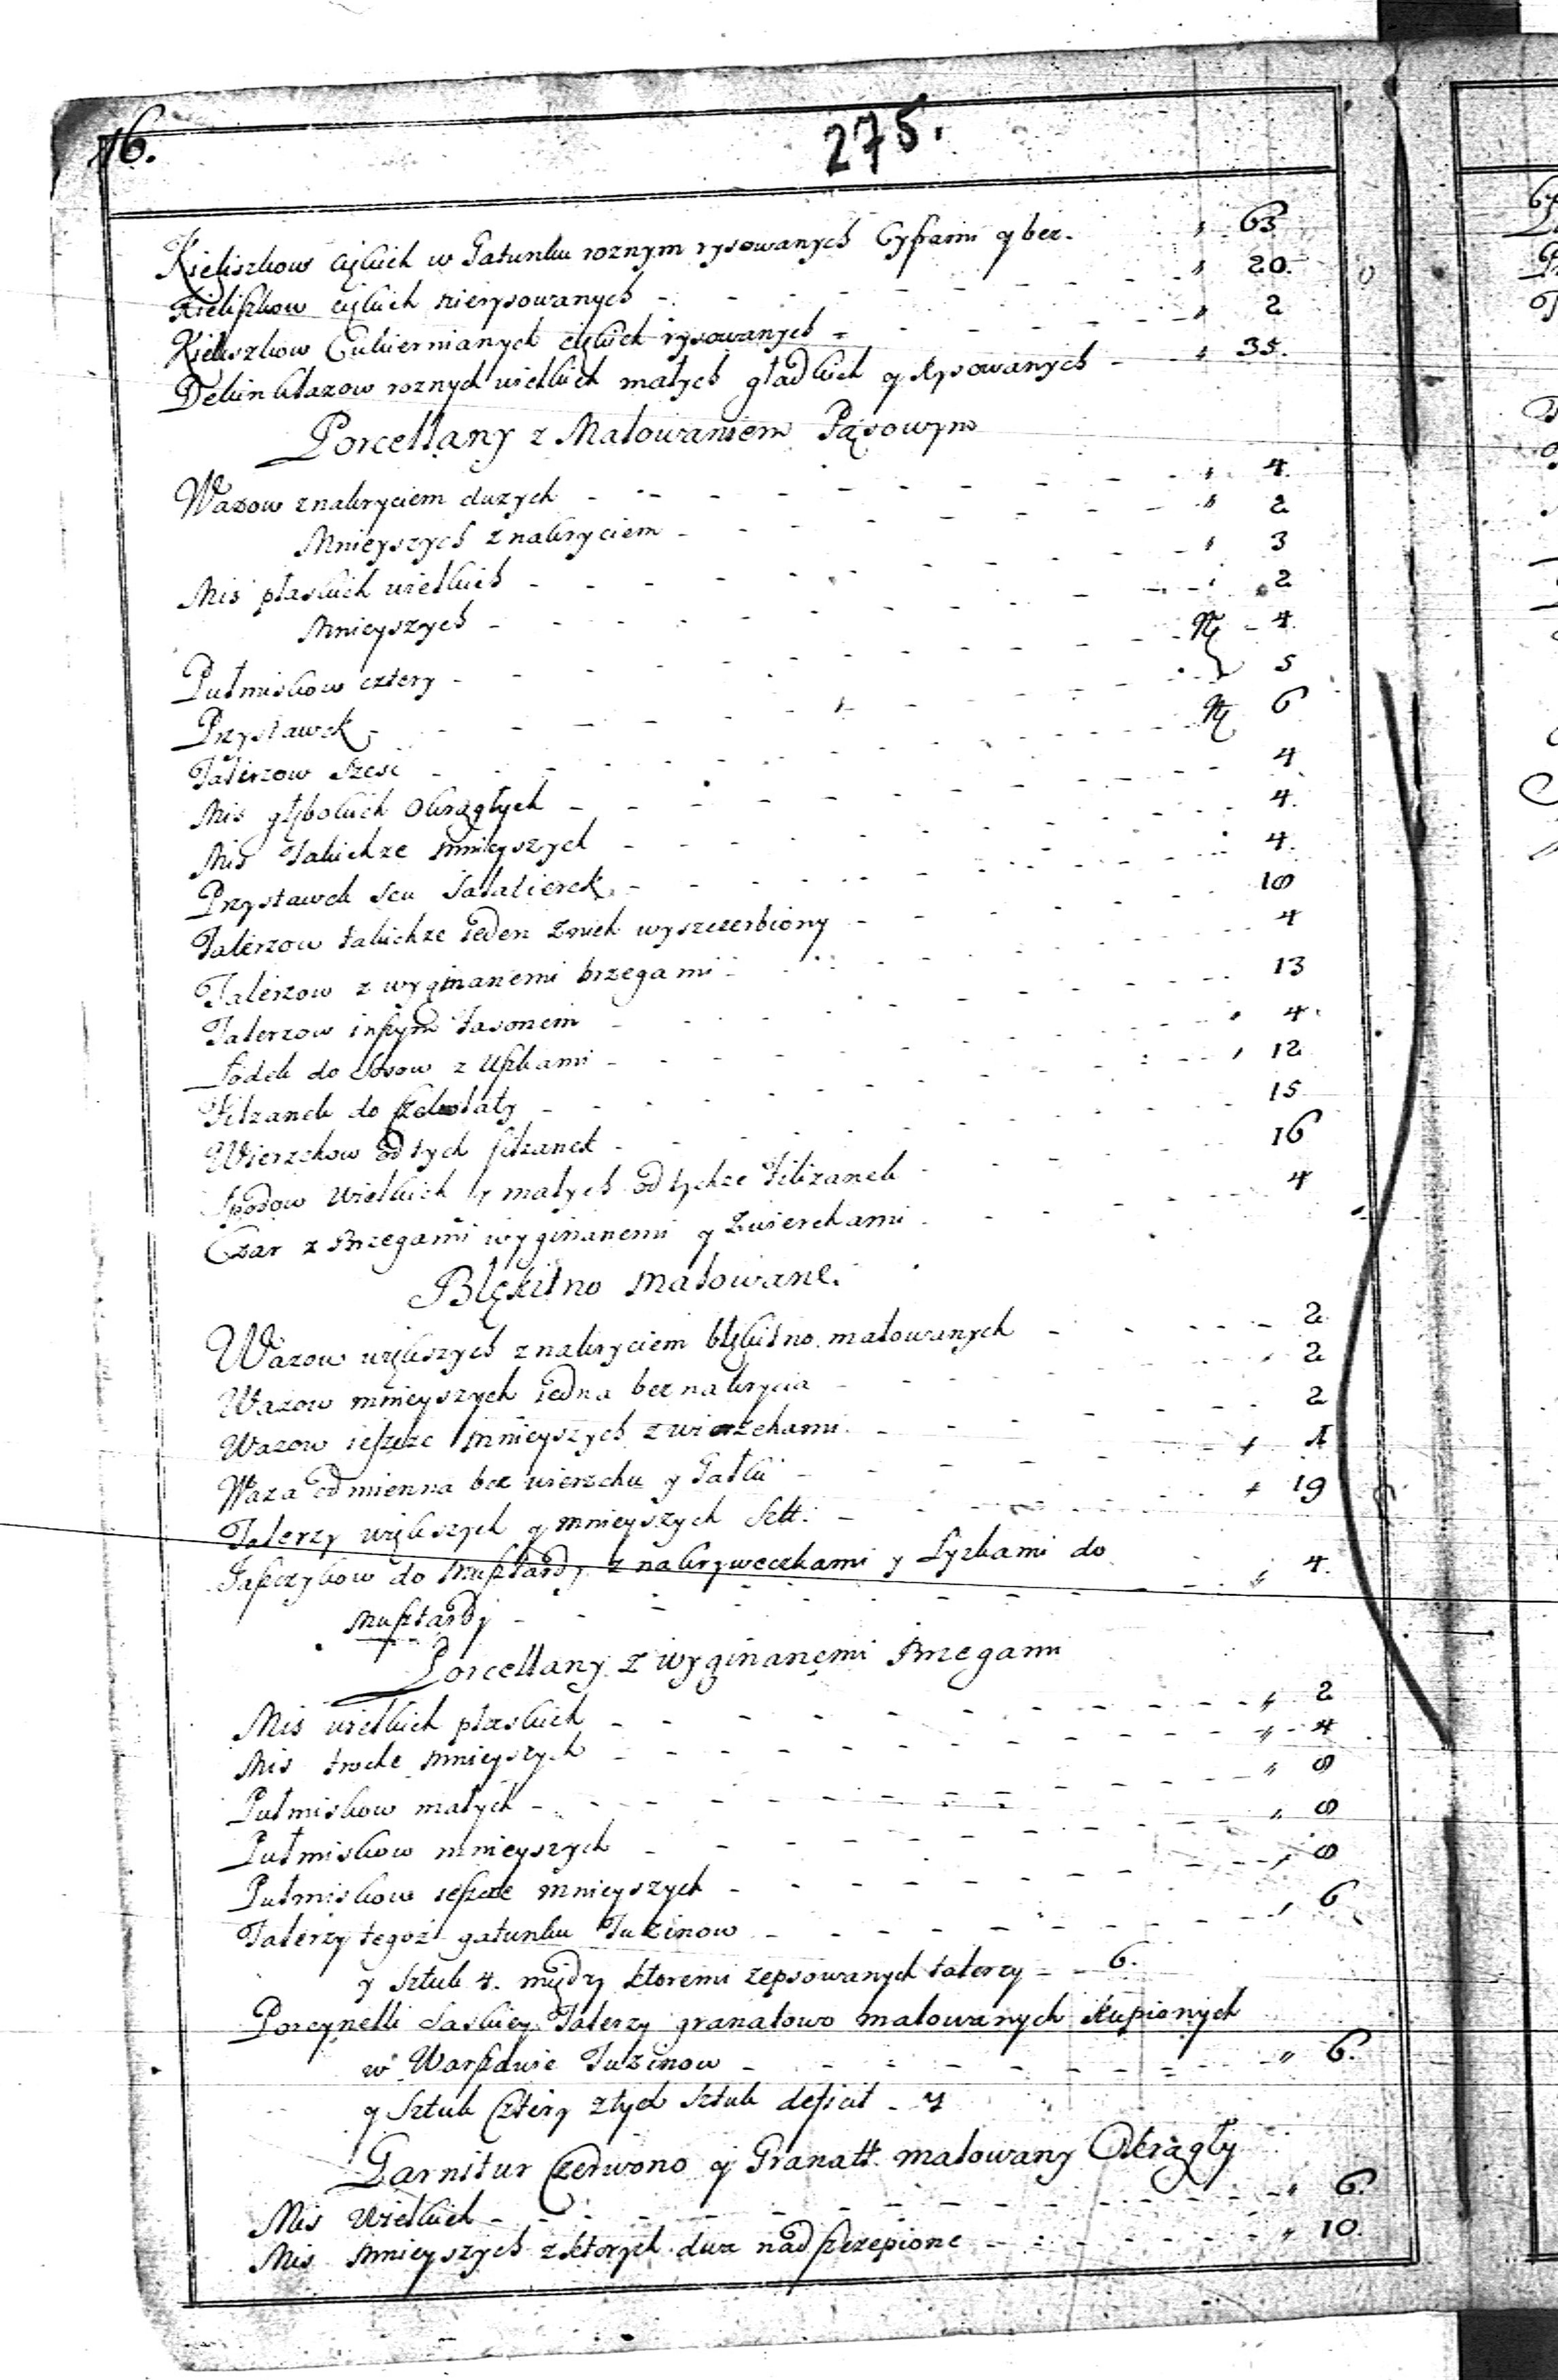 16.
275.
Kieliszkow ciękich w Gatunku roznym rysowanych Cyframi y bez. 63
Kieliszkow ciękich nierysowanych 20.
Kieliszkow Cukiernianych ciękich rysowanych 2
Dekinklazow roznych wielkich małych gładkich y Rysowanych 35.
Porcellany z Malowaniem Pąsowym
Wazow z nakryciem duzych 4.
Mnieyszych z nakryciem 2
Mis płaskich wielkich 3
Mnieyszych 2
Pułmiskow cztery 4.
Przystawek 5
Talerzow Szesć 6
Mis głębokich Okrągłych 4
Mis takichze mnieyszych 4.
Przystawek seu Salatierek 4.
Talerzow takichze ieden z nich wyszczerbiony 18
Talerzow z wyginanemi brzegami 4
Talerzow inszym fasonem 13
Łodek do Sosow z Uszkami 4.
Filzanek do szekolaty 12
Wierzchow od tych filzanek 15
Spodow Wielkich y małych od tychze Filizanek 16
Czar z Brzegami wyginanemi y Zwierchami 4
Blękitno malowane.
Wazow większych z nakryciem błękitno malowanych 2
Wazow mnieyszych iedna bez nakrycia 2
Wazow ieszcze mnieyszych z wierzchami 2
Waza odmienna bez wierzchu y Gałki 1
Talerzy większych y mnieyszych Sztt. 19
Faszczykow do Musztardy z nakryweczkami y Łyzkami do
Musztardy 4.
Porcellany z wyginanemi Brzegami
Mis wielkich płaskich 2
Mis troche mnieyszych 4
Pułmiskow małych 8
Pułmiskow mnieyszych 8
Pułmiskow ieszcze mnieyszych 8
Talerzy tegoż gatunku Tuzinow 6
y Sztuk 4. między ktoremi zepsowanych talerzy 6.
Porcynelli Saskiey Talerzy granatowo malowanych kupionych
w Warszawie Tuzinow 6.
y Sztuk Cztery złych sztuk deficit 4
Garnitur Czerwono y Granatt. malowany Okrągły
Mis Wielkich 6.
Mis Mnieyszych z ktorych dwa nadszczepione 10.